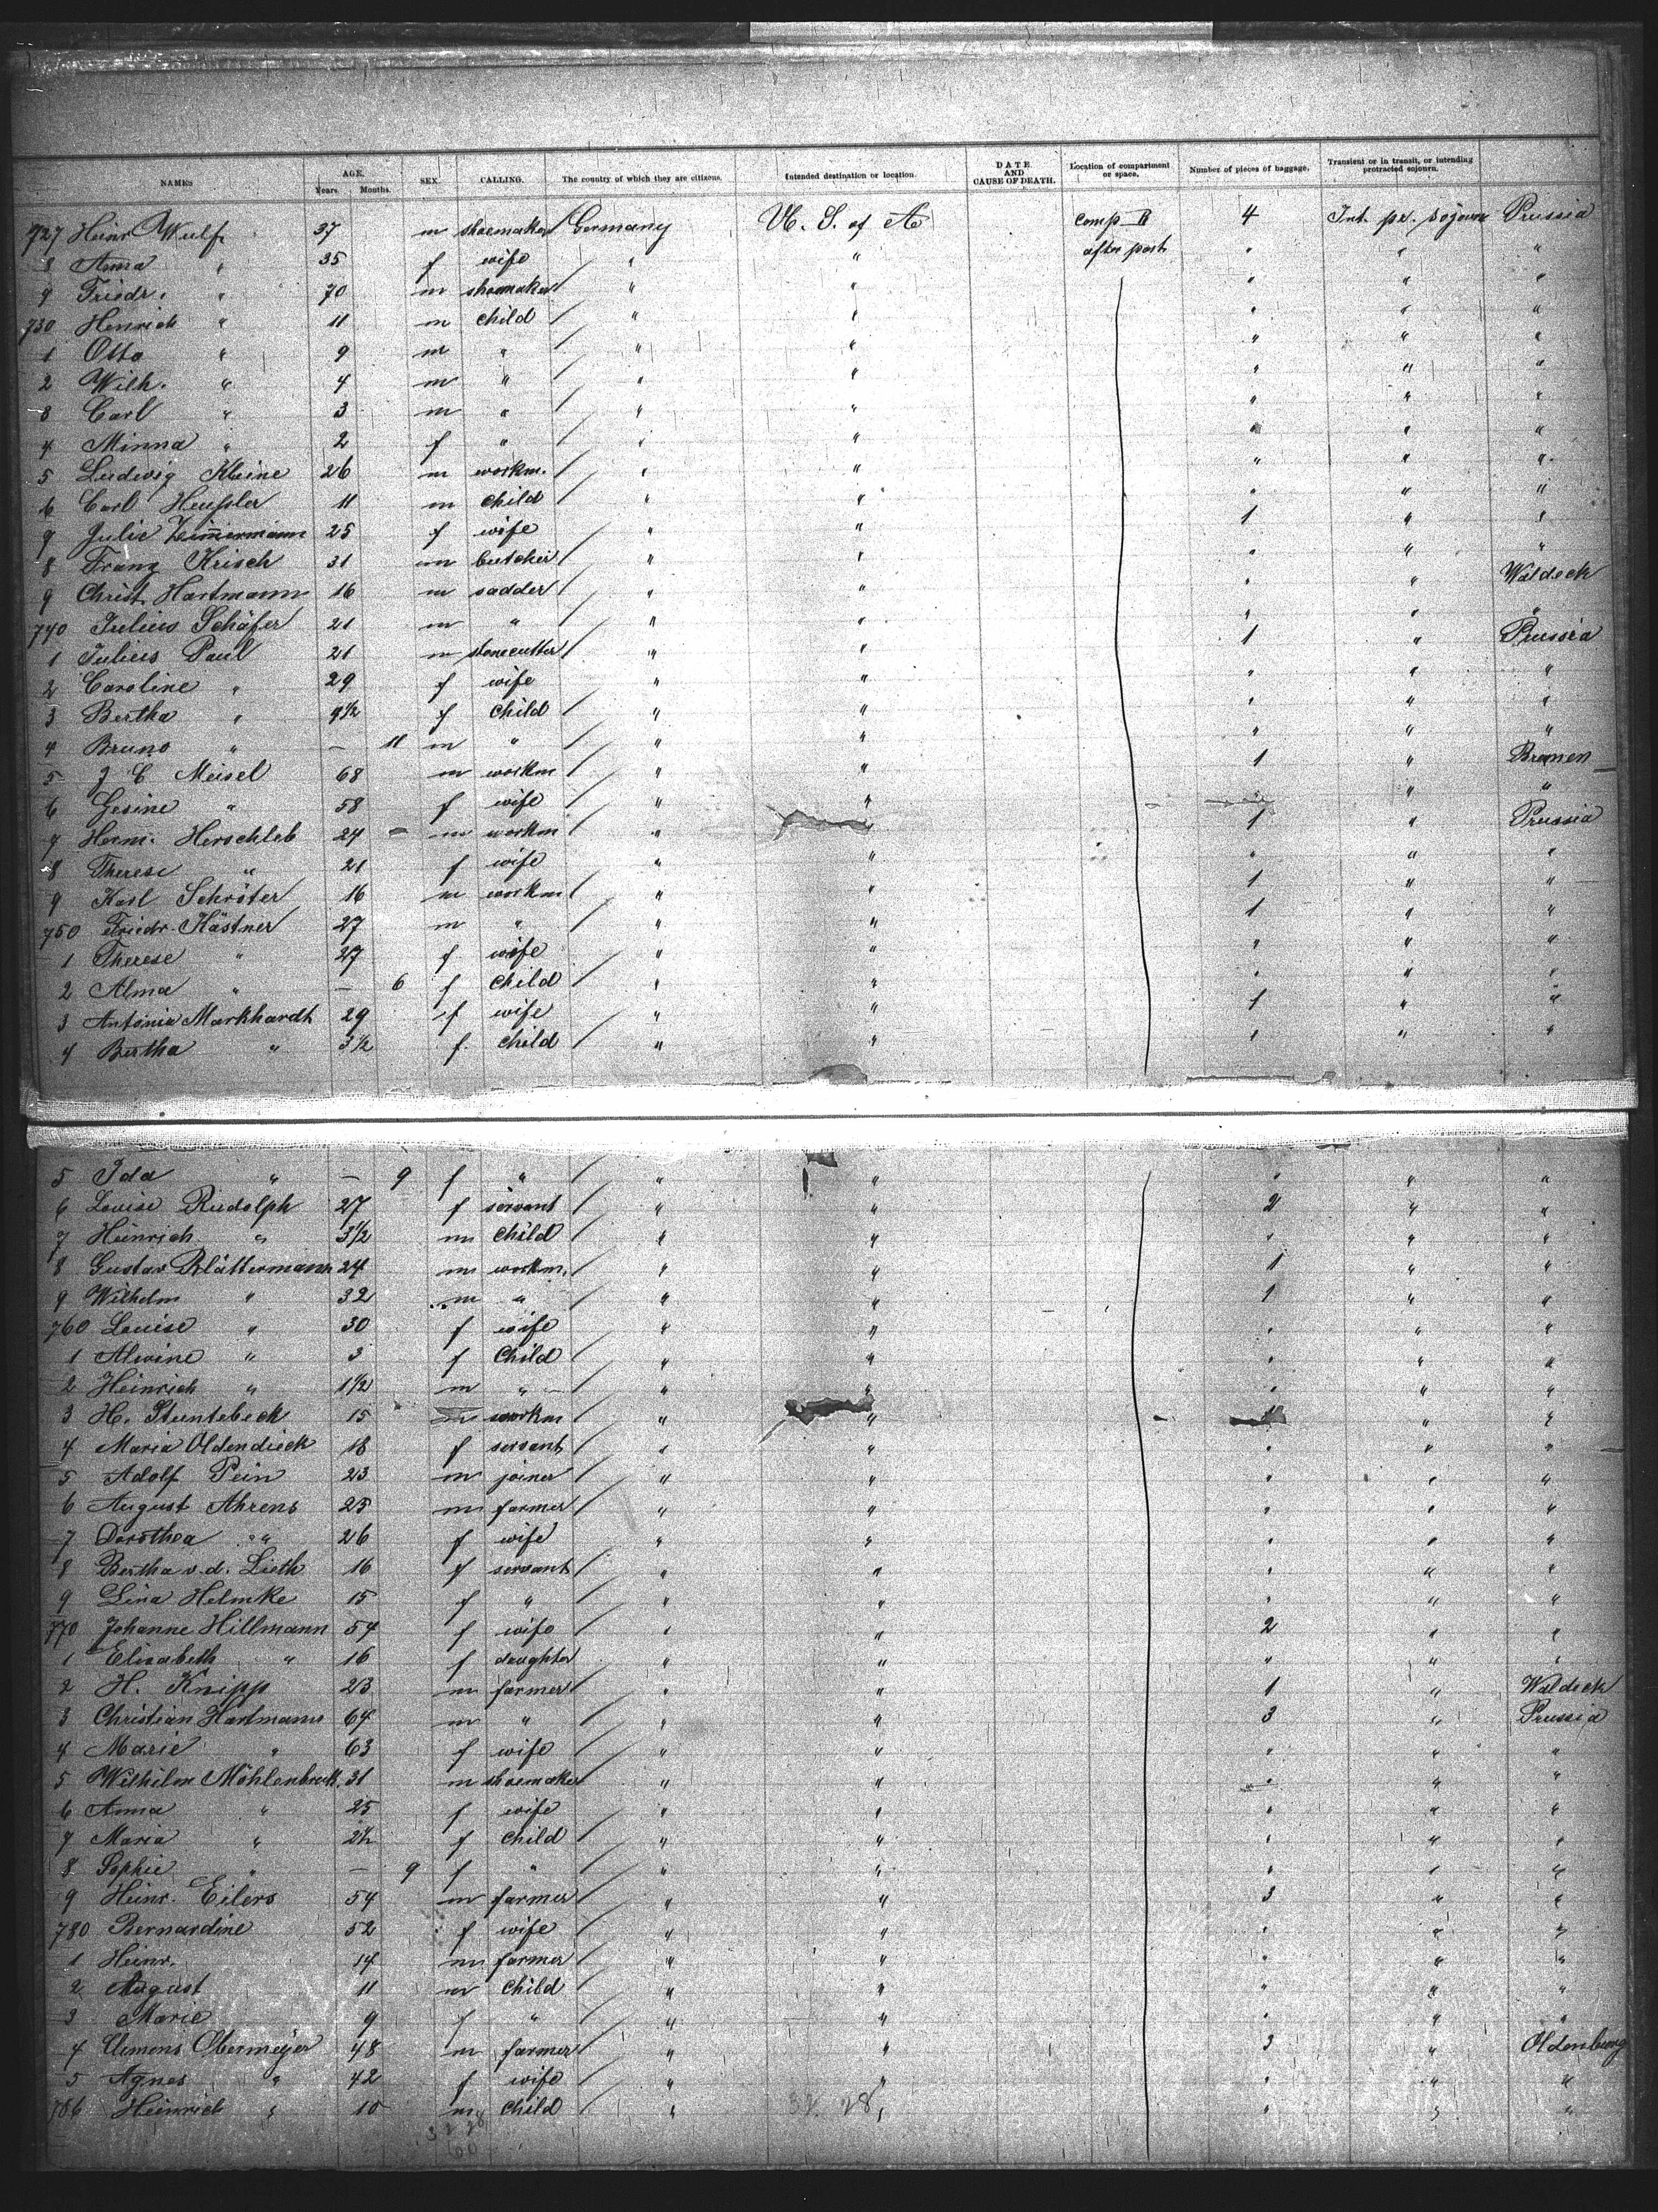 NAMES AGE. Years. Months. SEX. CALLING. The country of which they are citizens. Intended destination or location. DATE AND CAUSE OF DEATH. Location of compartment or space. Number of pieces of baggage. Transient or in transit, or intending protracted sojourn.
727 Heinr. Wulf 37 m shoemaker Germany U. S. of A comp II 4 Int. pr. sojourn Prussia
8 Anna " 35 f wife " " after part " " "
9 Friedr. " 70 m shoemaker " " " " "
730 Henrich " 11 m child " " " " "
1 Otto " 9 m " " " " " "
2 Wilh. " 4 m " " " " " "
3 Carl " 3 m " " " " " "
4 Minna " 2 f " " " " " "
5 Ludwig Kleine 26 m workm. " " " " "
6 Carl Heußler 11 m child " " " " "
7 Julie Zimmermann 25 f wife " " 1 " "
8 Franz Krisch 31 m butcher " " " " "
9 Christ. Hartmann 16 m sadder " " " " Waldeck
740 Julius Schäfer 21 m " " " " " "
1 Julius Paul 21 m stonecutter " " 1 " Prussia
2 Caroline " 29 f wife " " " " "
3 Bertha " 9½ f child " " " " "
4 Bruno " — 11 m " " " " " "
5 J C Meisel 68 m workm " " 1 " Bremen
6 Gesine " 58 f wife " " " "
7 Herm. Herschleb 24 m workm " " 1 " Prussia
8 Therese " 21 f wife " " " " "
9 Karl Schröter 16 m workm " " 1 " "
750 Friedr. Kästner 27 m " " " 1 " "
1 Therese " 27 f wife " " " " "
2 Alma " — 6 f child " " " " "
3 Antonia Markhardt 29 f wife " " 1 " "
4 Bertha " 3½ f. child " " " " "
5 Ida " — 9 f " " " " " "
6 Louise Rudolph 27 f servant " " 2 " "
7 Heinrich " 3½ m child " " " " "
8 Gustav Blättermann 24 m workm. " " 1 " "
9 Wilhelm " 32 m " " " 1 " "
760 Louise " 30 f wife " " " " "
1 Alwine " 3 f child " " " " "
2 Heinrich " 1½ m " " " " " "
3 H. Stuntebeck 15 m workm " " " "
4 Maria Oldendieck 18 f servant " " " " "
5 Adolf Pein 23 m joiner " " " " "
6 August Ahrens 25 m farmer " " " " "
7 Dorothea " 26 f wife " " " " "
8 Bertha v. d. Lieth 16 f servant " " " " "
9 Lina Helmke 15 f " " " " " "
770 Johanne Hillmann 54 f wife " " 2 " "
1 Elisabeth " 16 f daughter " " " " "
2 H. Knipp 23 m farmer " " 1 " Waldeck
3 Christian Hartmann 64 m " " " 3 " Prussia
4 Marie " 63 f wife " " " " "
5 Wilhelm Möhlenbruck. 31 m shoemaker " " " " "
6 Anna " 25 f wife " " " " "
7 Maria " 2½ f child " " " " "
8 Sophie " — 9 f " " " " " "
9 Heinr. Eilers 54 m farmer " " 3 " "
780 Bernardine 52 f wife " " " " "
1 Heinr. 14 m farmer " " " " "
2 August 11 m child " " " " "
3 Marie 9 f " " " " " "
4 Clemens Obermeyer 48 m farmer " " 3 " Oldenburg
5 Agnes " 42 f wife " " " " "
786 Heinrich " 10 m child " 32 28 " " " "
32 28
60